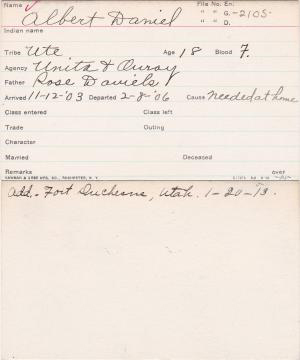 Name File No. En:
Albert Daniel " " G. -2105-
" " D.
Indian name
Tribe Ute Age 18 Blood F.
Agency Unita & Ouray
Father Rose Daniels
Arrived 11-12-'03 Departed 2-8-'06 Cause Needed at home
Class entered Class left
Trade Outing
Character
Married Deceased
Remarks over
YAWMAN & ERBE MFG. CO., ROCHESTER, N. Y.
Add.- Fort Duchesne, Utah. 1-20-'13.